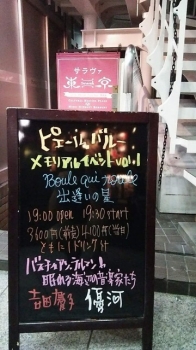 サラヴァ
東京
ピエール・バルー
メモリアルイベント vol.1
Boule qui roule
出逢いの星
19:00 open 19:30 start
3600円(前売) 4100円(当日)
ともに1ドリンク付
バスティアン・ラルマン
眠れる海辺の音楽家たち
吉田慶子 優河